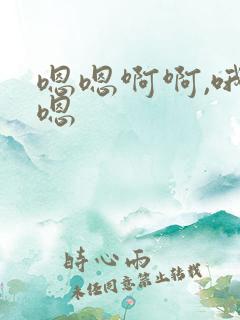 嗯嗯啊啊,哦
嗯
時心雨
未经同意禁止转载